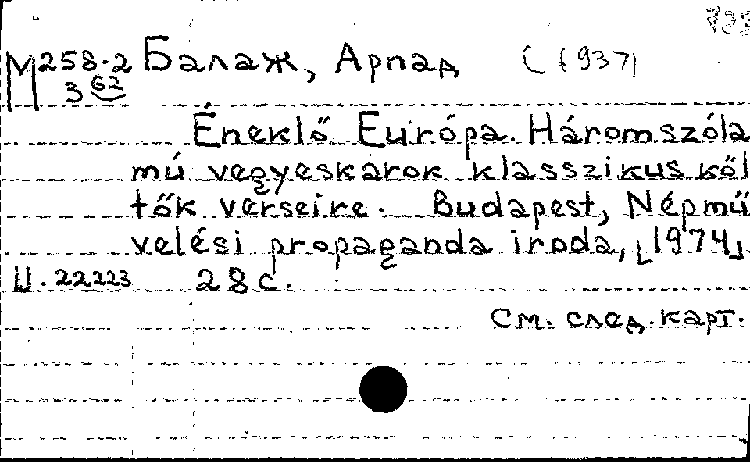 М258-2 Балаж, Арпад (1937)
3 62
Éneklő Európa. Háromszóla
mú vegyeskarok klasszikus köl
tők verseire. Budapest, Népmű
velési propaganda iroda, [1974]
И. 22223 28 с.
См. след. карт.